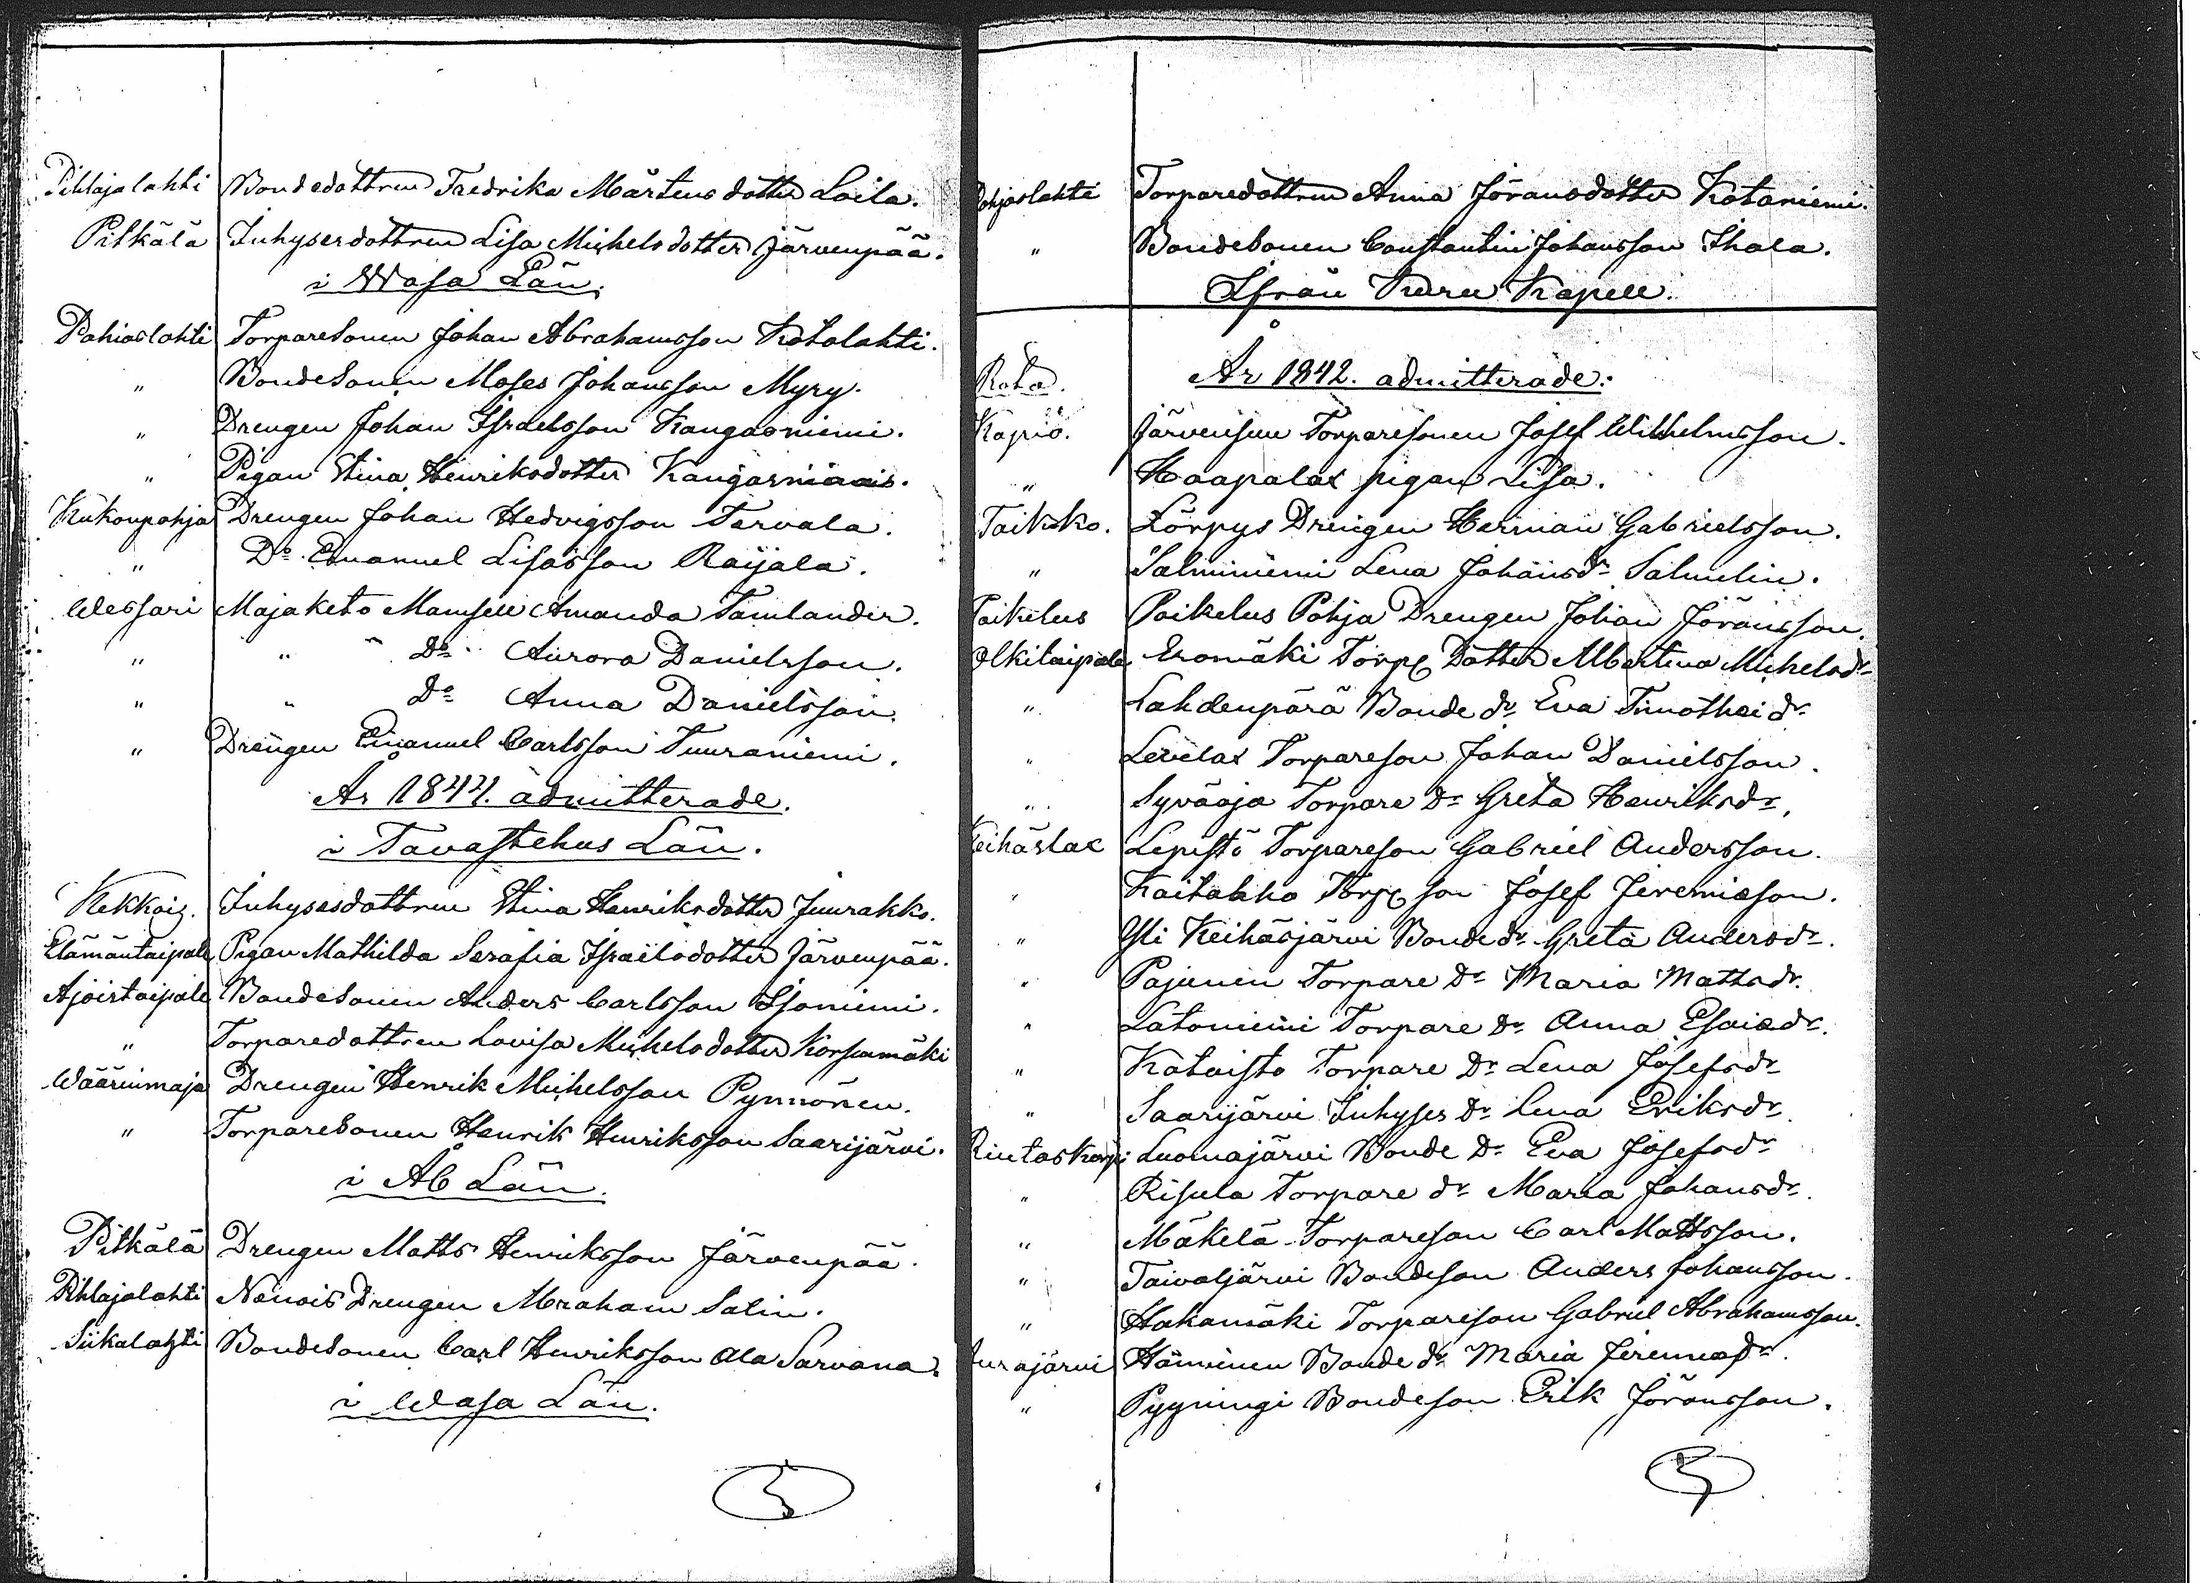 Pihlajalahti Bondedottren Fredrika Mårtensdotter Loila.
Pitkälä Inhyserdottren Lisa Michelsdotter Järvenpää.
i Wasa Län.
Pohjaslahti Torparesonen Johan Abrahamsson Kotalahti.
" Bondesonen Moses Johansson Myry.
" Drengen Johan Israelsson Kangasniemi.
" Pigan Stina Henriksdotter
Kukonpohja Drengen Johan Hedvigsson Tervala.
" Do Emanuel Lisasson Raijala.
Wessari Majaketo Mamsell Amanda Tamlander.
" " Do Aurora Danielsson.
" " Do Anna Danielsson.
" Drengen Emanuel Carlsson Tuuraniemi.
År 1844. admitterade.
i Tavastehus Län.
Kekkois. Inhysesdottren Stina Henriksdotter Juurakko.
Elämäntaipale Pigan Mathilda Serafia Israelsdotter Järvenpää.
Ajoistaipale Bondesonen Anders Carlsson Isoniemi.
" Torparedottren Lovisa Michelsdotter Korsumäki
Wäärinmaja Drengen Henrik Michelsson Pynnönen.
" Torparesonen Henrik Henriksson Saarijärvi.
i Åb Län.
Pitkälä Drengen Matts Henriksson Järvenpää.
Pihlajalahti Nenois Drengen Abraham Salin.
Siikalahti Bondesonen Carl Henriksson Ala Sarvana.
i Wasa Län.
Pohjaslahti Torparedottren Anna Jöransdotter Kotaniemi.
" Bondesonen Constantin Johansson Ihala.
Ifrån Kuru Kapell.
År 1842. admitterade:
Rota.
Kapio. Järvensuu Torparesonen Josef Wilhelmsson.
" Haapalax pigan Lisa.
Toikko. Lörpys Drengen Herman Gabrielsson.
" Salminiemi Lena Johansdr Salmelin.
Poikelus Poikelus Pohja Drengen Johan Jöransson.
Olkitaipale Eromäki Torp. Dotter Albertina Michelsdr
" Lahdenpärä Bonde dr Eva Timotheidr
" Levelax Torpareson Johan Danielsson.
" Syväoja Torpare Dr Greta Henriksdr.
Keihäslax Lepistö Torpareson Gabriel Andersson.
" Kaitakko Torp. son Josef Jeremiasson.
" Yli Keihäsjärvi Bondedr Greta Andersdr.
" Pajunen Torpare Dr Maria Mattsdr.
" Latoniemi Torpare Dr Anna Esaiædr.
" Kataisto Torpare Dr Lena Josefsdr
" Saarijärvi Inhyses Dr Lena Eriksdr.
Riutaskorpi Luomajärvi Bonde Dr Eva Josefsdr
" Risula Torpare dr Maria Johansdr.
" Mäkelä Torpareson Carl Mattsson.
" Taivaljärvi Bondeson Anders Johansson.
" Hakamäki Torpareson Gabriel Abrahamsson.
Aurajärvi Hänninen Bonde dr Maria Jeremiædr.
" Pyyningi Bondeson Erik Jöransson.